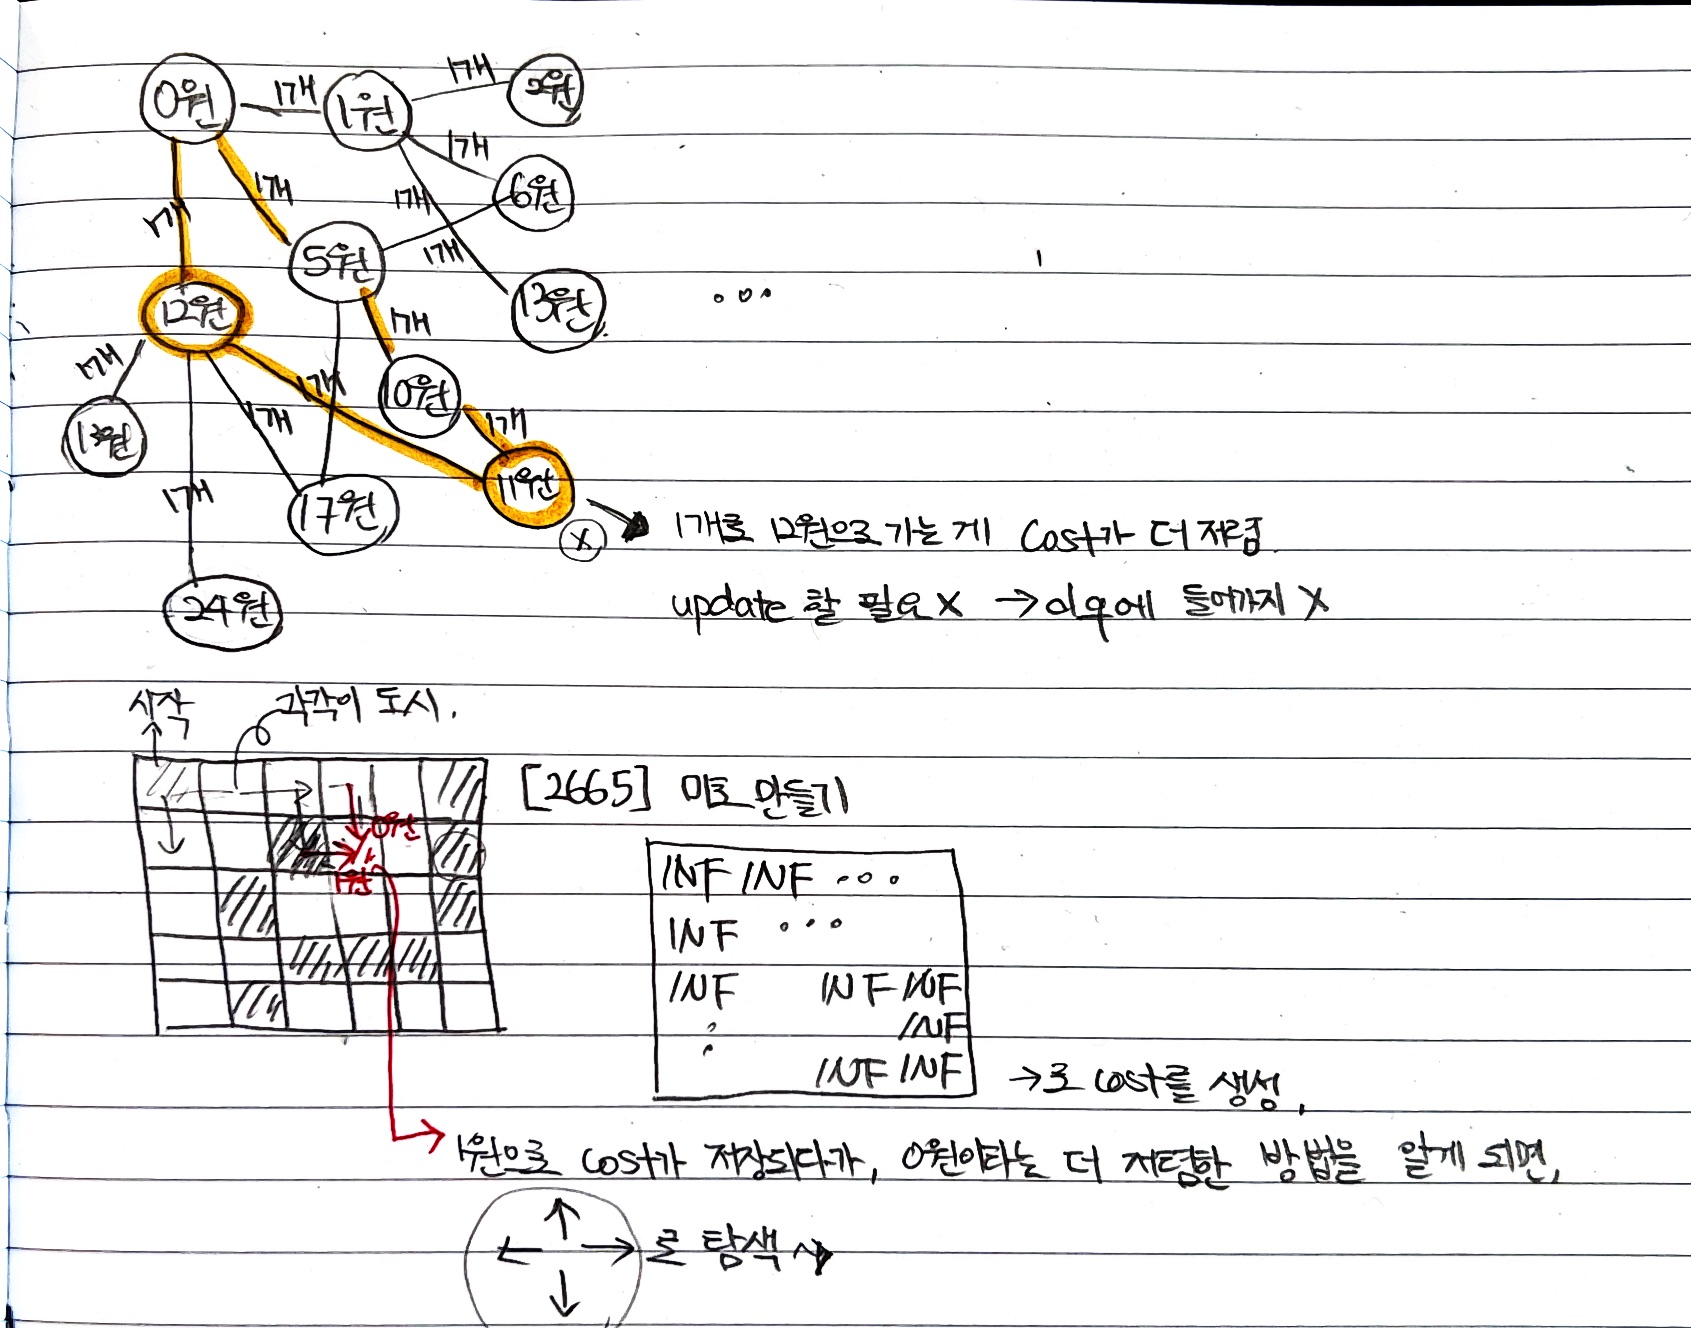 0원 1개 1원 1개 2원
1개
6원
1개
1개
1개
5원
1개
12원
13원
...
1개
1개
1개
10원
1개
1개
13원
11원
17원
1개
X
1개로 12원으로 가는 게 cost가 더 저렴.
24원
update 할 필요 X → dq에 들어가지 X
시작
각각이 도시.
[2665] 미로 만들기
0원
1원
INF INF ...
INF ...
INF INF INF
INF
INF INF
→로 cost를 생성.
1원으로 cost가 저장되다가, 0원이라는 더 저렴한 방법을 알게 되면,
↑
← → 로 탐색
↓